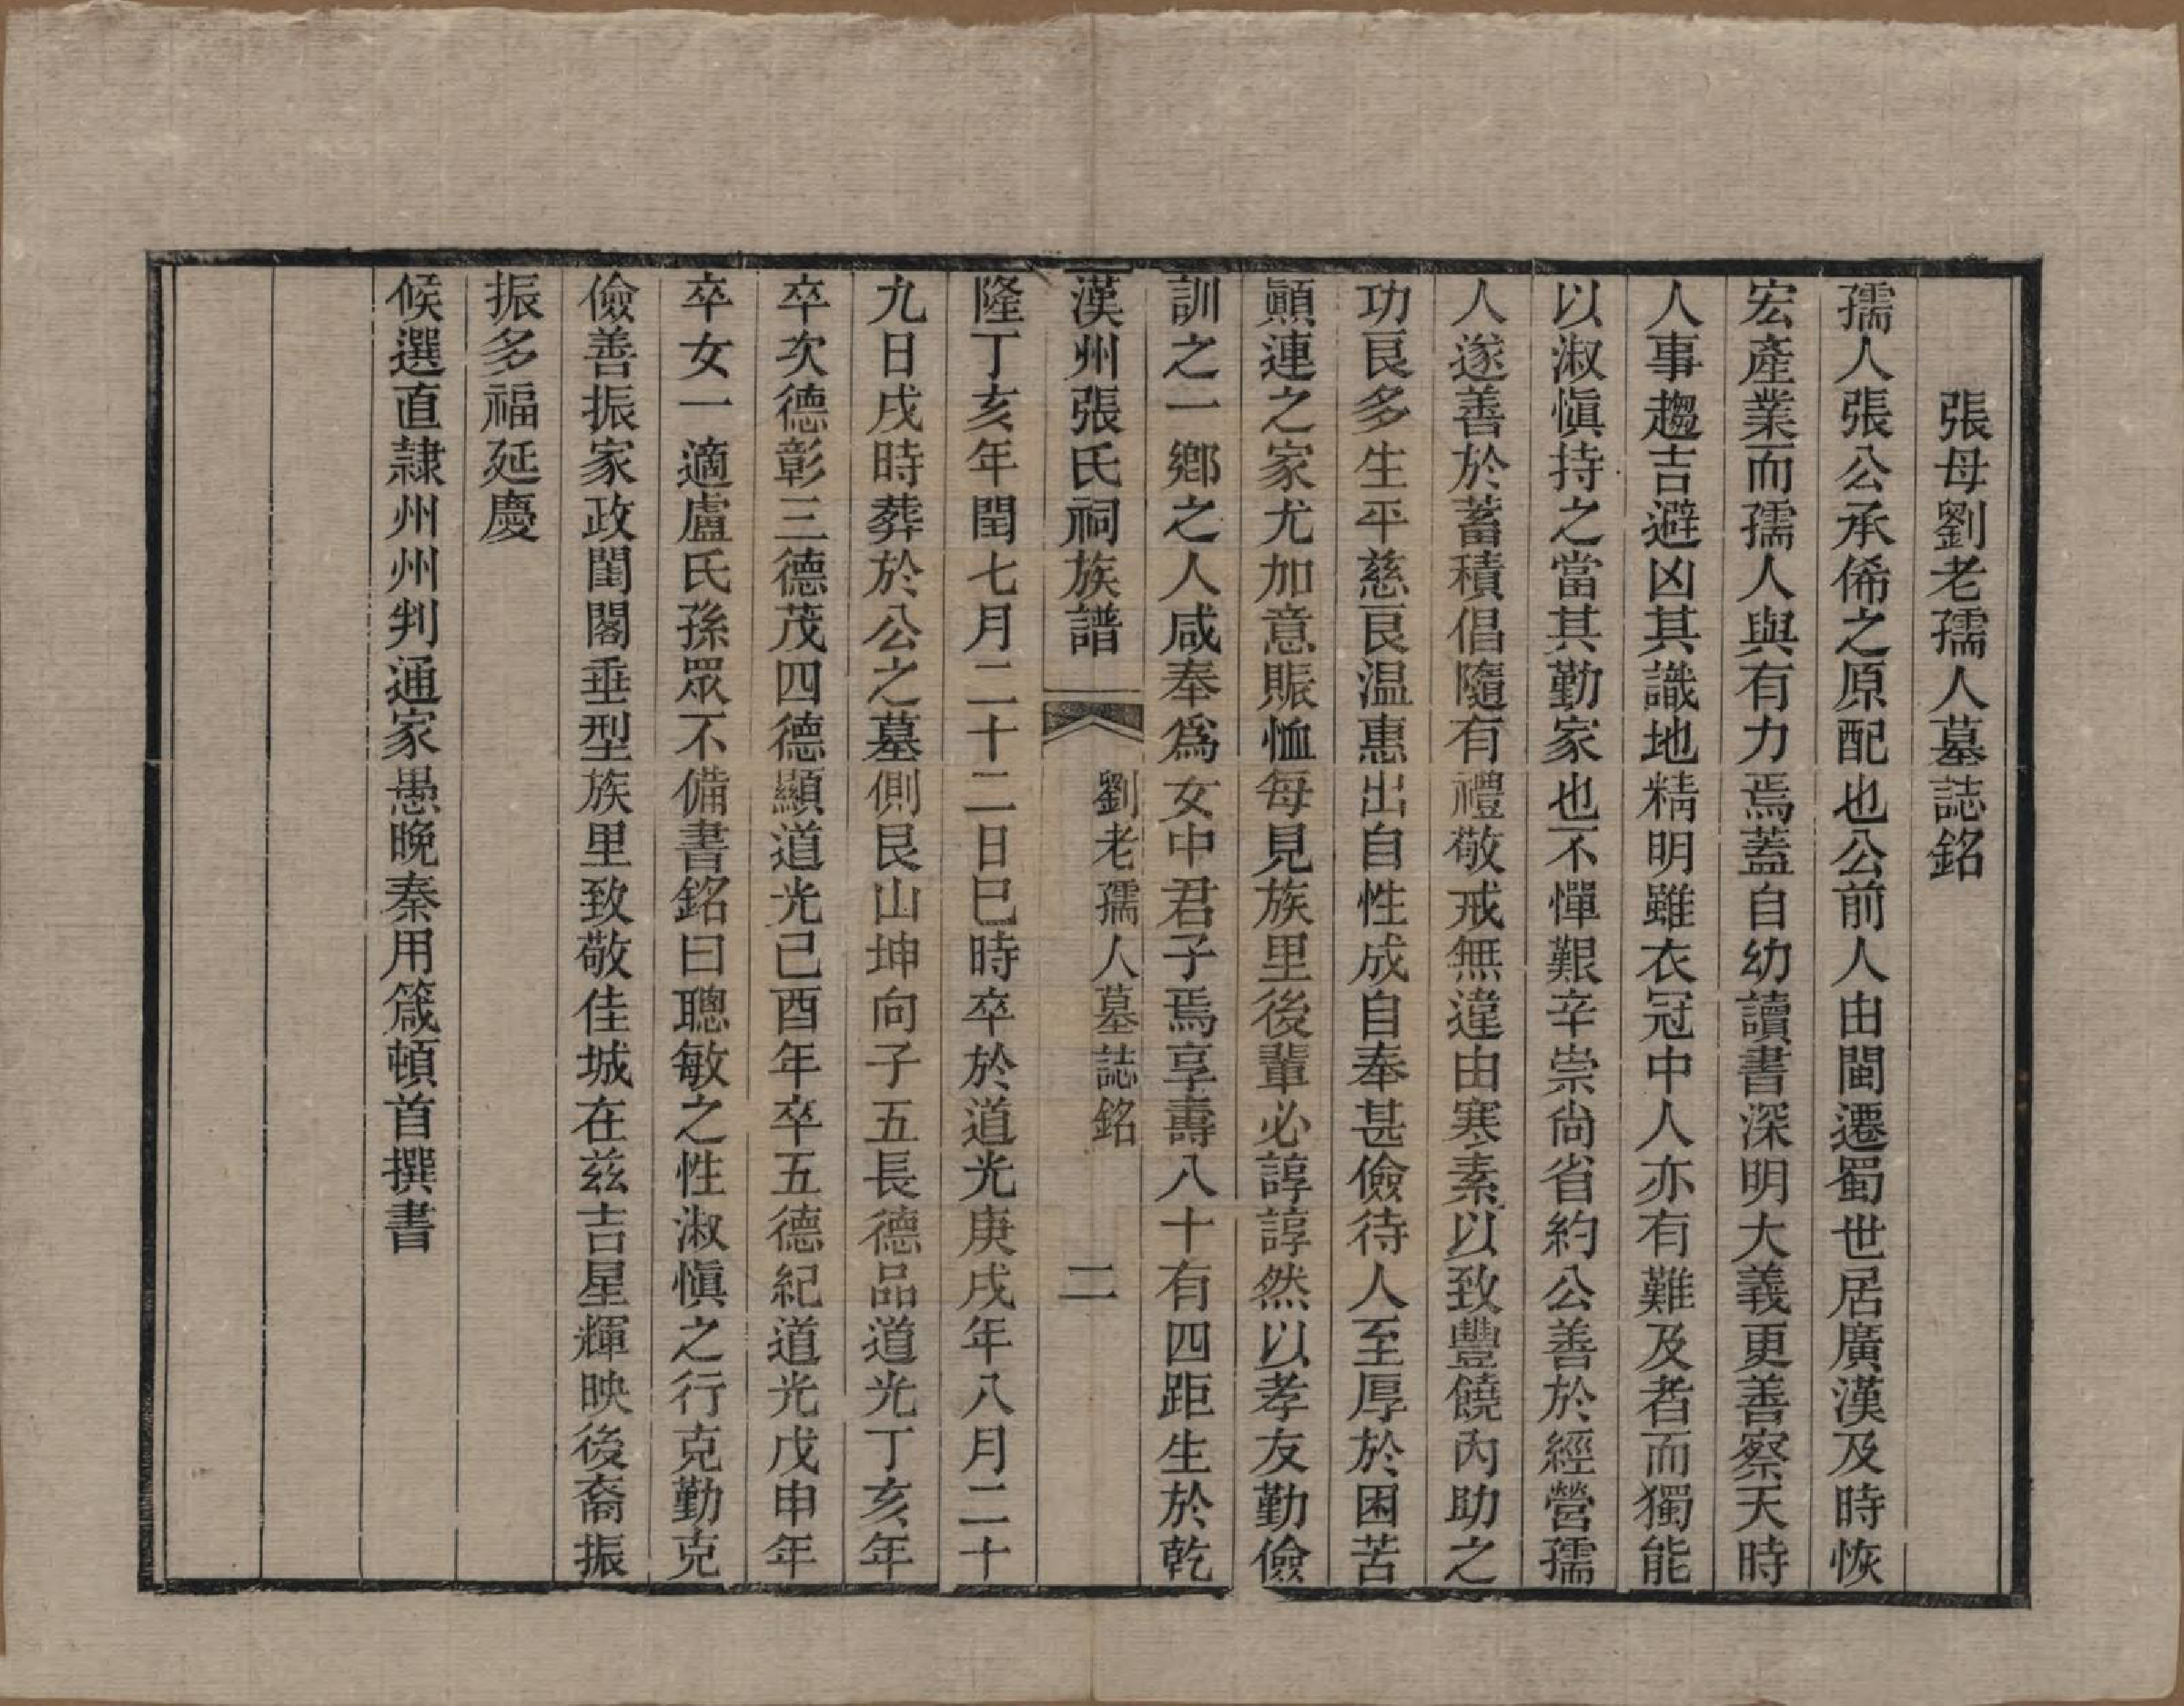 張母劉老孺人墓誌銘
孺人張公承俙之原配也公前人由閩遷蜀世居廣漢及時恢
宏產業而孺人與有力焉蓋自幼讀書深明大義更善察天時
人事趨吉避凶其識地精明雖衣冠中人亦有難及者而獨能
以淑愼持之當其勤家也不憚艱辛崇尙省約公善於經營孺
人遂善於蓄積倡隨有禮敬戒無違由寒素以致豐饒內助之
功良多生平慈良温惠出自性成自奉甚儉待人至厚於困苦
顚連之家尤加意賑恤每見族里後輩必諄諄然以孝友勤儉
訓之一鄉之人咸奉爲女中君子焉享壽八十有四距生於乾
漢州張氏祠族譜 劉老孺人墓誌銘 二
隆丁亥年閏七月二十二日巳時卒於道光庚戌年八月二十
九日戌時葬於公之墓側艮山坤向子五長德品道光丁亥年
卒次德彰三德茂四德顯道光己酉年卒五德紀道光戊申年
卒女一適盧氏孫眾不備書銘曰聰敏之性淑愼之行克勤克
儉善振家政閨閣垂型族里致敬佳城在兹吉星輝映後裔振
振多福延慶
候選直隷州州判通家愚晚秦用箴頓首撰書